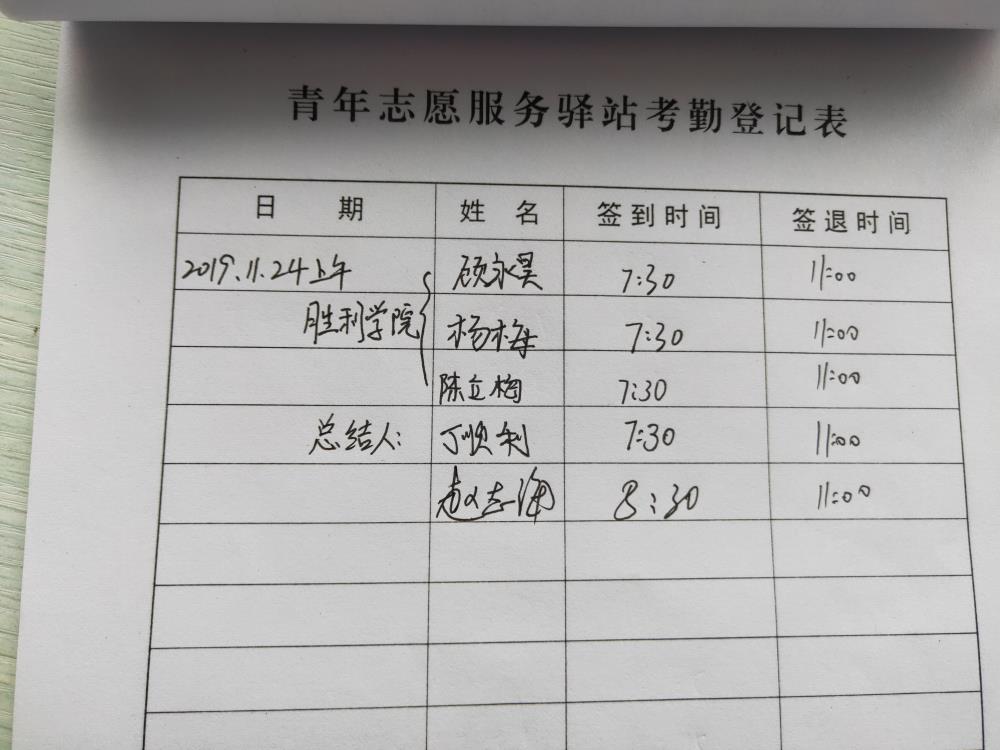 青年志愿服务驿站考勤登记表
日 期 姓 名 签到时间 签退时间
2019.11.24上午 顾永昊 7:30 11:00
胜利学院 杨梅 7:30 11:00
陈立构 7:30 11:00
总结人: 丁顺利 7:30 11:00
赵志海 8:30 11:00